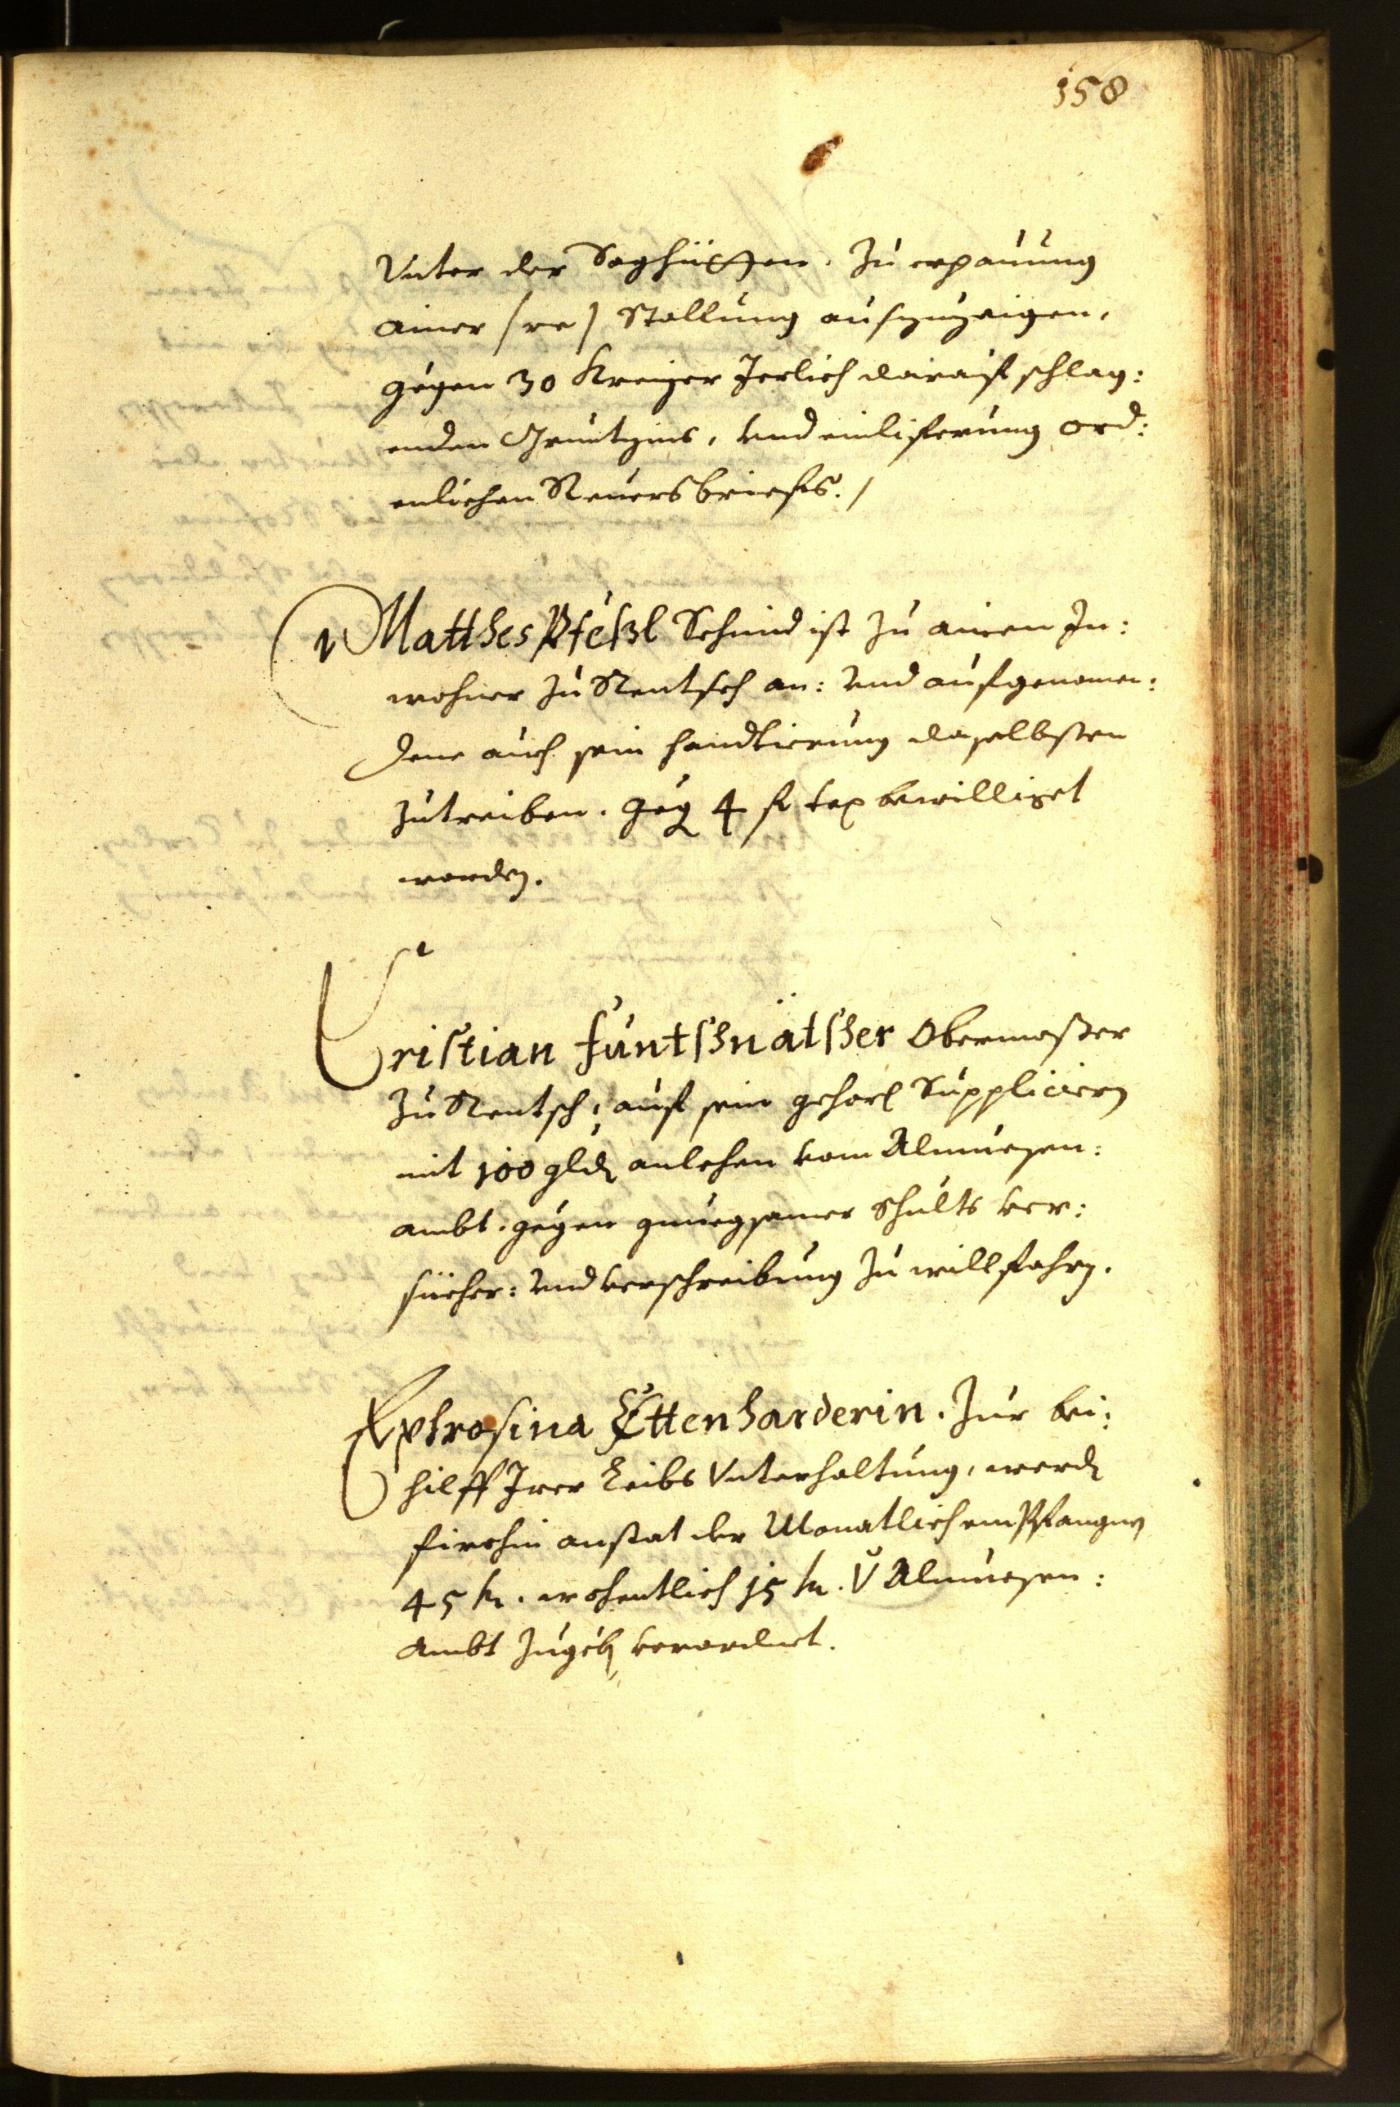 158
Vnter der Saghütten. Zu erpauung
ainer /re/ Stallung aufzuzaigen,
gegen 30 Kreizer Jerlich darauf schlag:
enden Gruntzins, vnd einliferung ord:
enlichen Reuersbriefs./
Matthes Pfeßl Schmid ist zu ainen In:
wohner zu Rentsch an: vnd aufgenomen:
deme auch sein handtierung daselbsten
zutreiben. geg 4 fl tax bewilliget
worden.
Cristian Funtshnätsher Obermosser
zu Rentsch, auf sein gehors Suppliciern
mit 100 gld anlehen vom Almuesen:
ambt. gegen gnuegsamer Schults ver:
sücher: vnd verschreibung zu willfahrn.
Ephrosina Ettenharderin. Zur bei:
hilff Irer Leibs Vnterhaltung, werd
firohin anstat der Monatlich empfangnen
45 kr. wohentlich 15 kr. V Almuesen:
Ambt zugeb verordnet.